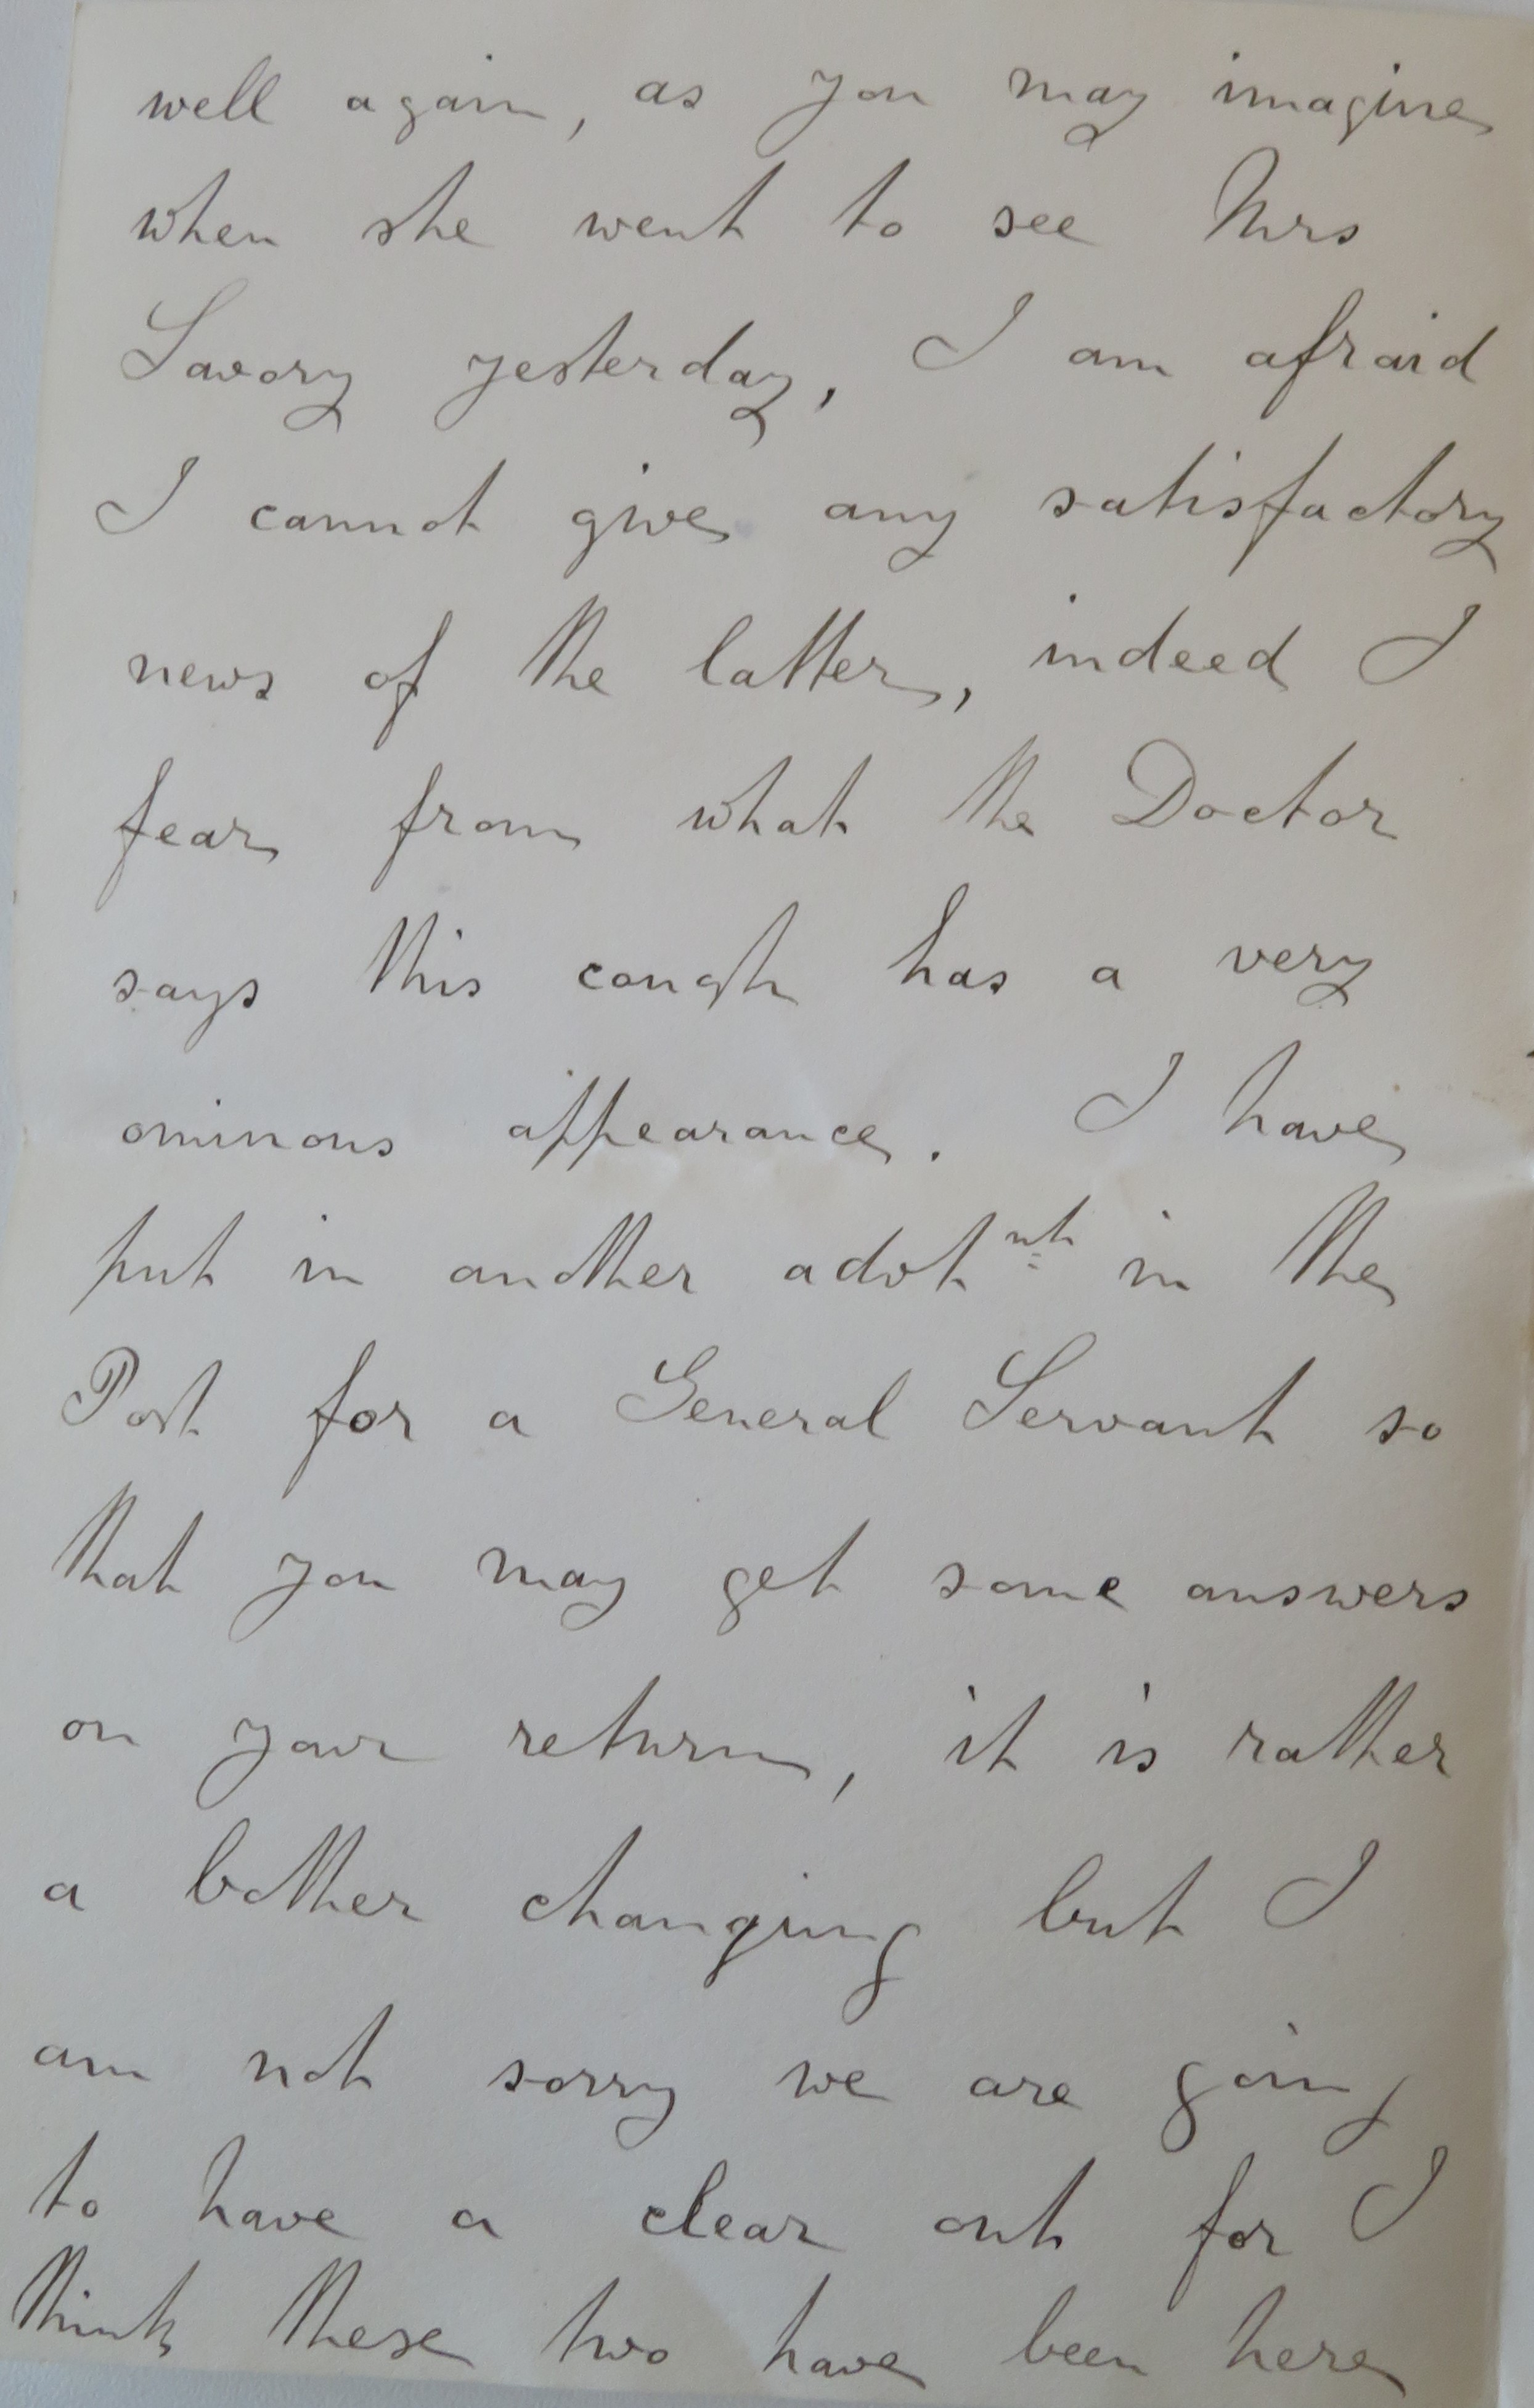 well again, as you may imagine
when she went to see Mrs
Savory yesterday, I am afraid
I cannot give any satisfactory
news of the latter, indeed I
fear from what the Doctor
says this cough has a very
ominous appearance. I have
put in another advt nt in the
Post for a General Servant so
that you may get some answers
on your return, it is rather
a bother changing but I
am not sorry we are going
to have a clear out for I
think these two have been here